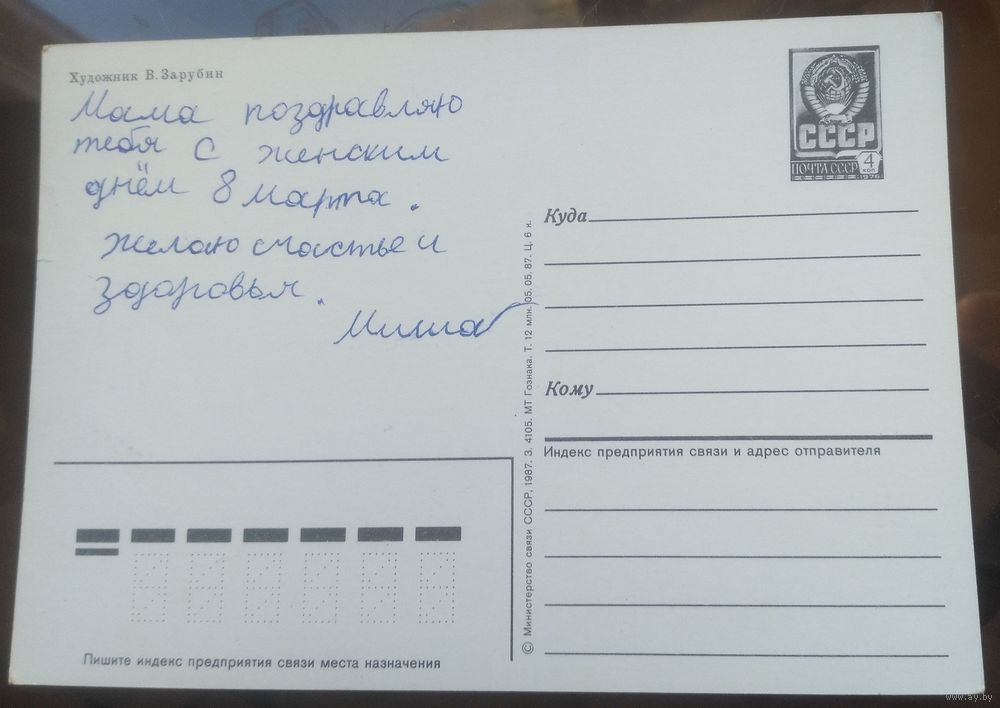 Художник В. Зарубин
Мама поздравляю
тебя с женским
днём 8 марта.
желаю счастье и
здоровья.
Миша
СССР
ПОЧТА СССР
4
коп
1976
Куда
Кому
Индекс предприятия связи и адрес отправителя
© Министерство связи СССР, 1987. З. 4105. МТ Гознака. Т. 12 млн. 05. 05. 87. Ц. 6 к.
Пишите индекс предприятия связи места назначения
www.ay.by